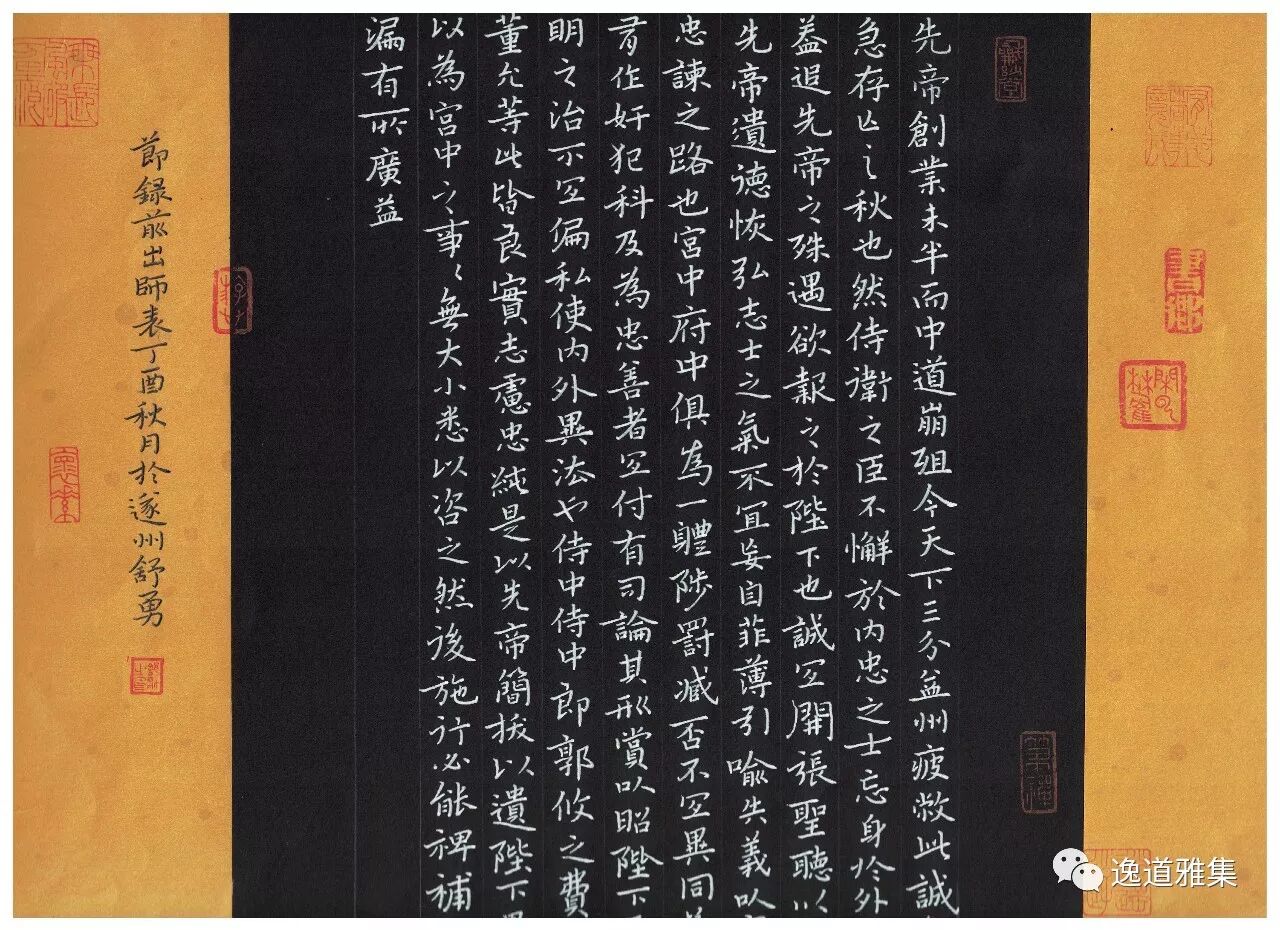 先帝創業未半而中道崩殂今天下三分益州疲敝此誠
急存亡之秋也然侍衛之臣不懈於內忠之士忘身於外
益追先帝之殊遇欲報之於陛下也誠宜開張聖聽以
先帝遺德恢弘志士之氣不宜妄自菲薄引喻失義以
忠諫之路也宮中府中俱為一體陟罰臧否不宜異同
有作奸犯科及為忠善者宜付有司論其刑賞以昭陛下
明之治不宜偏私使內外異法也侍中侍中郎郭攸之費
董允等此皆良實志慮忠純是以先帝簡拔以遺陛下
以為宮中之事〻無大小悉以咨之然後施行必能裨補
漏有所廣益
節錄前出師表丁酉秋月於遂州舒勇
書鄉
懷素
逸道雅集